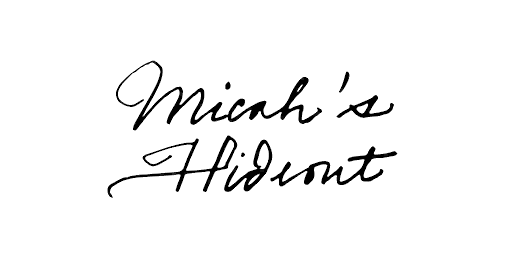 Micah's
Hideout